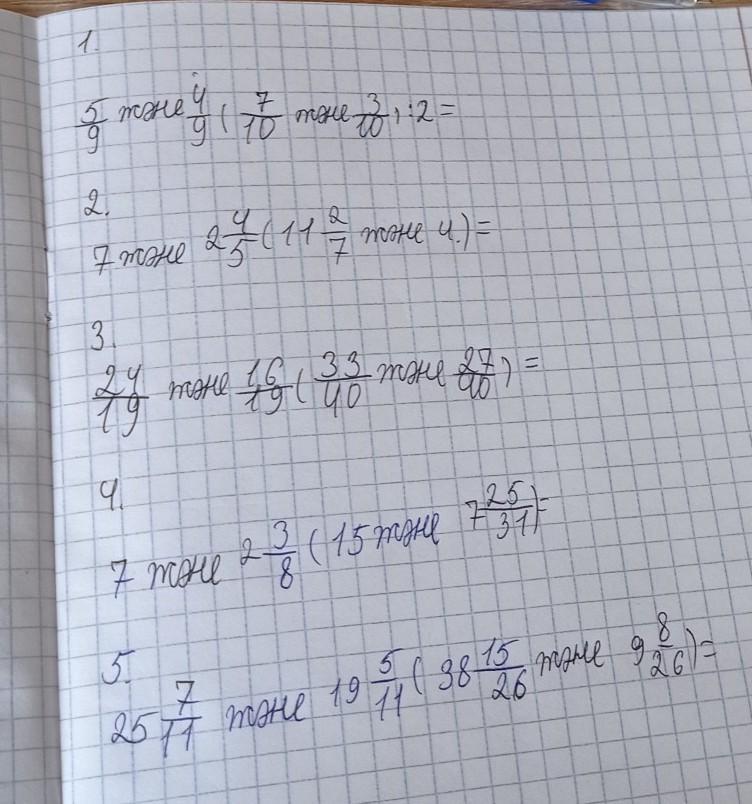 1.
5/9 және 4/9 ( 7/10 және 3/10 ) : 2 =
2.
7 және 2 4/5 ( 11 2/7 және 4. ) =
3.
24/19 және 16/19 ( 33/40 және 27/40 ) =
4.
7 және 2 3/8 ( 15 және 7 25/31 ) =
5.
25 7/11 және 19 5/11 ( 38 15/26 және 9 8/26 ) =